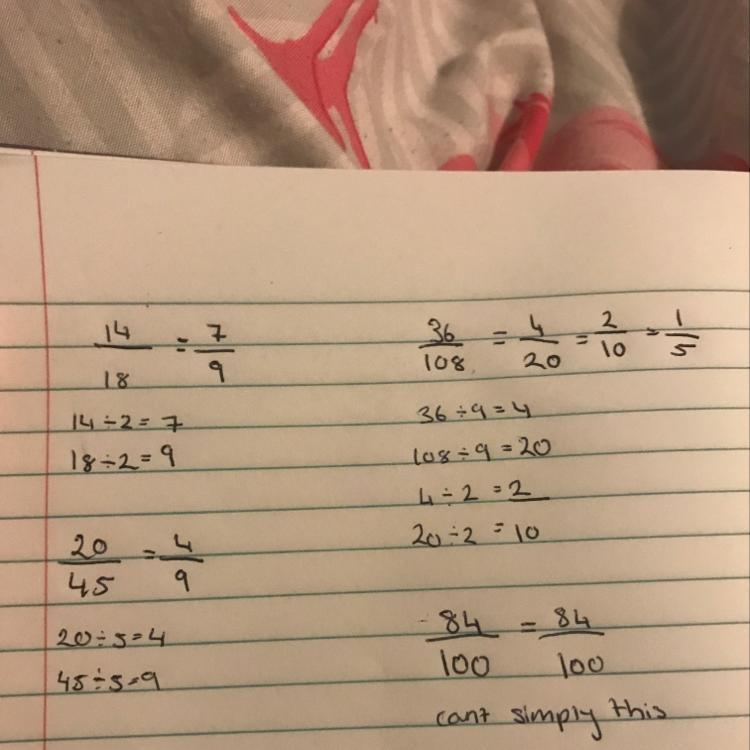 14/18 = 7/9
14÷2=7
18÷2=9
20/45 = 4/9
20÷5=4
45÷5=9
36/108 = 4/20 = 2/10 = 1/5
36÷9=4
108÷9=20
4÷2=2
20÷2=10
84/100 = 84/100
can't simply this